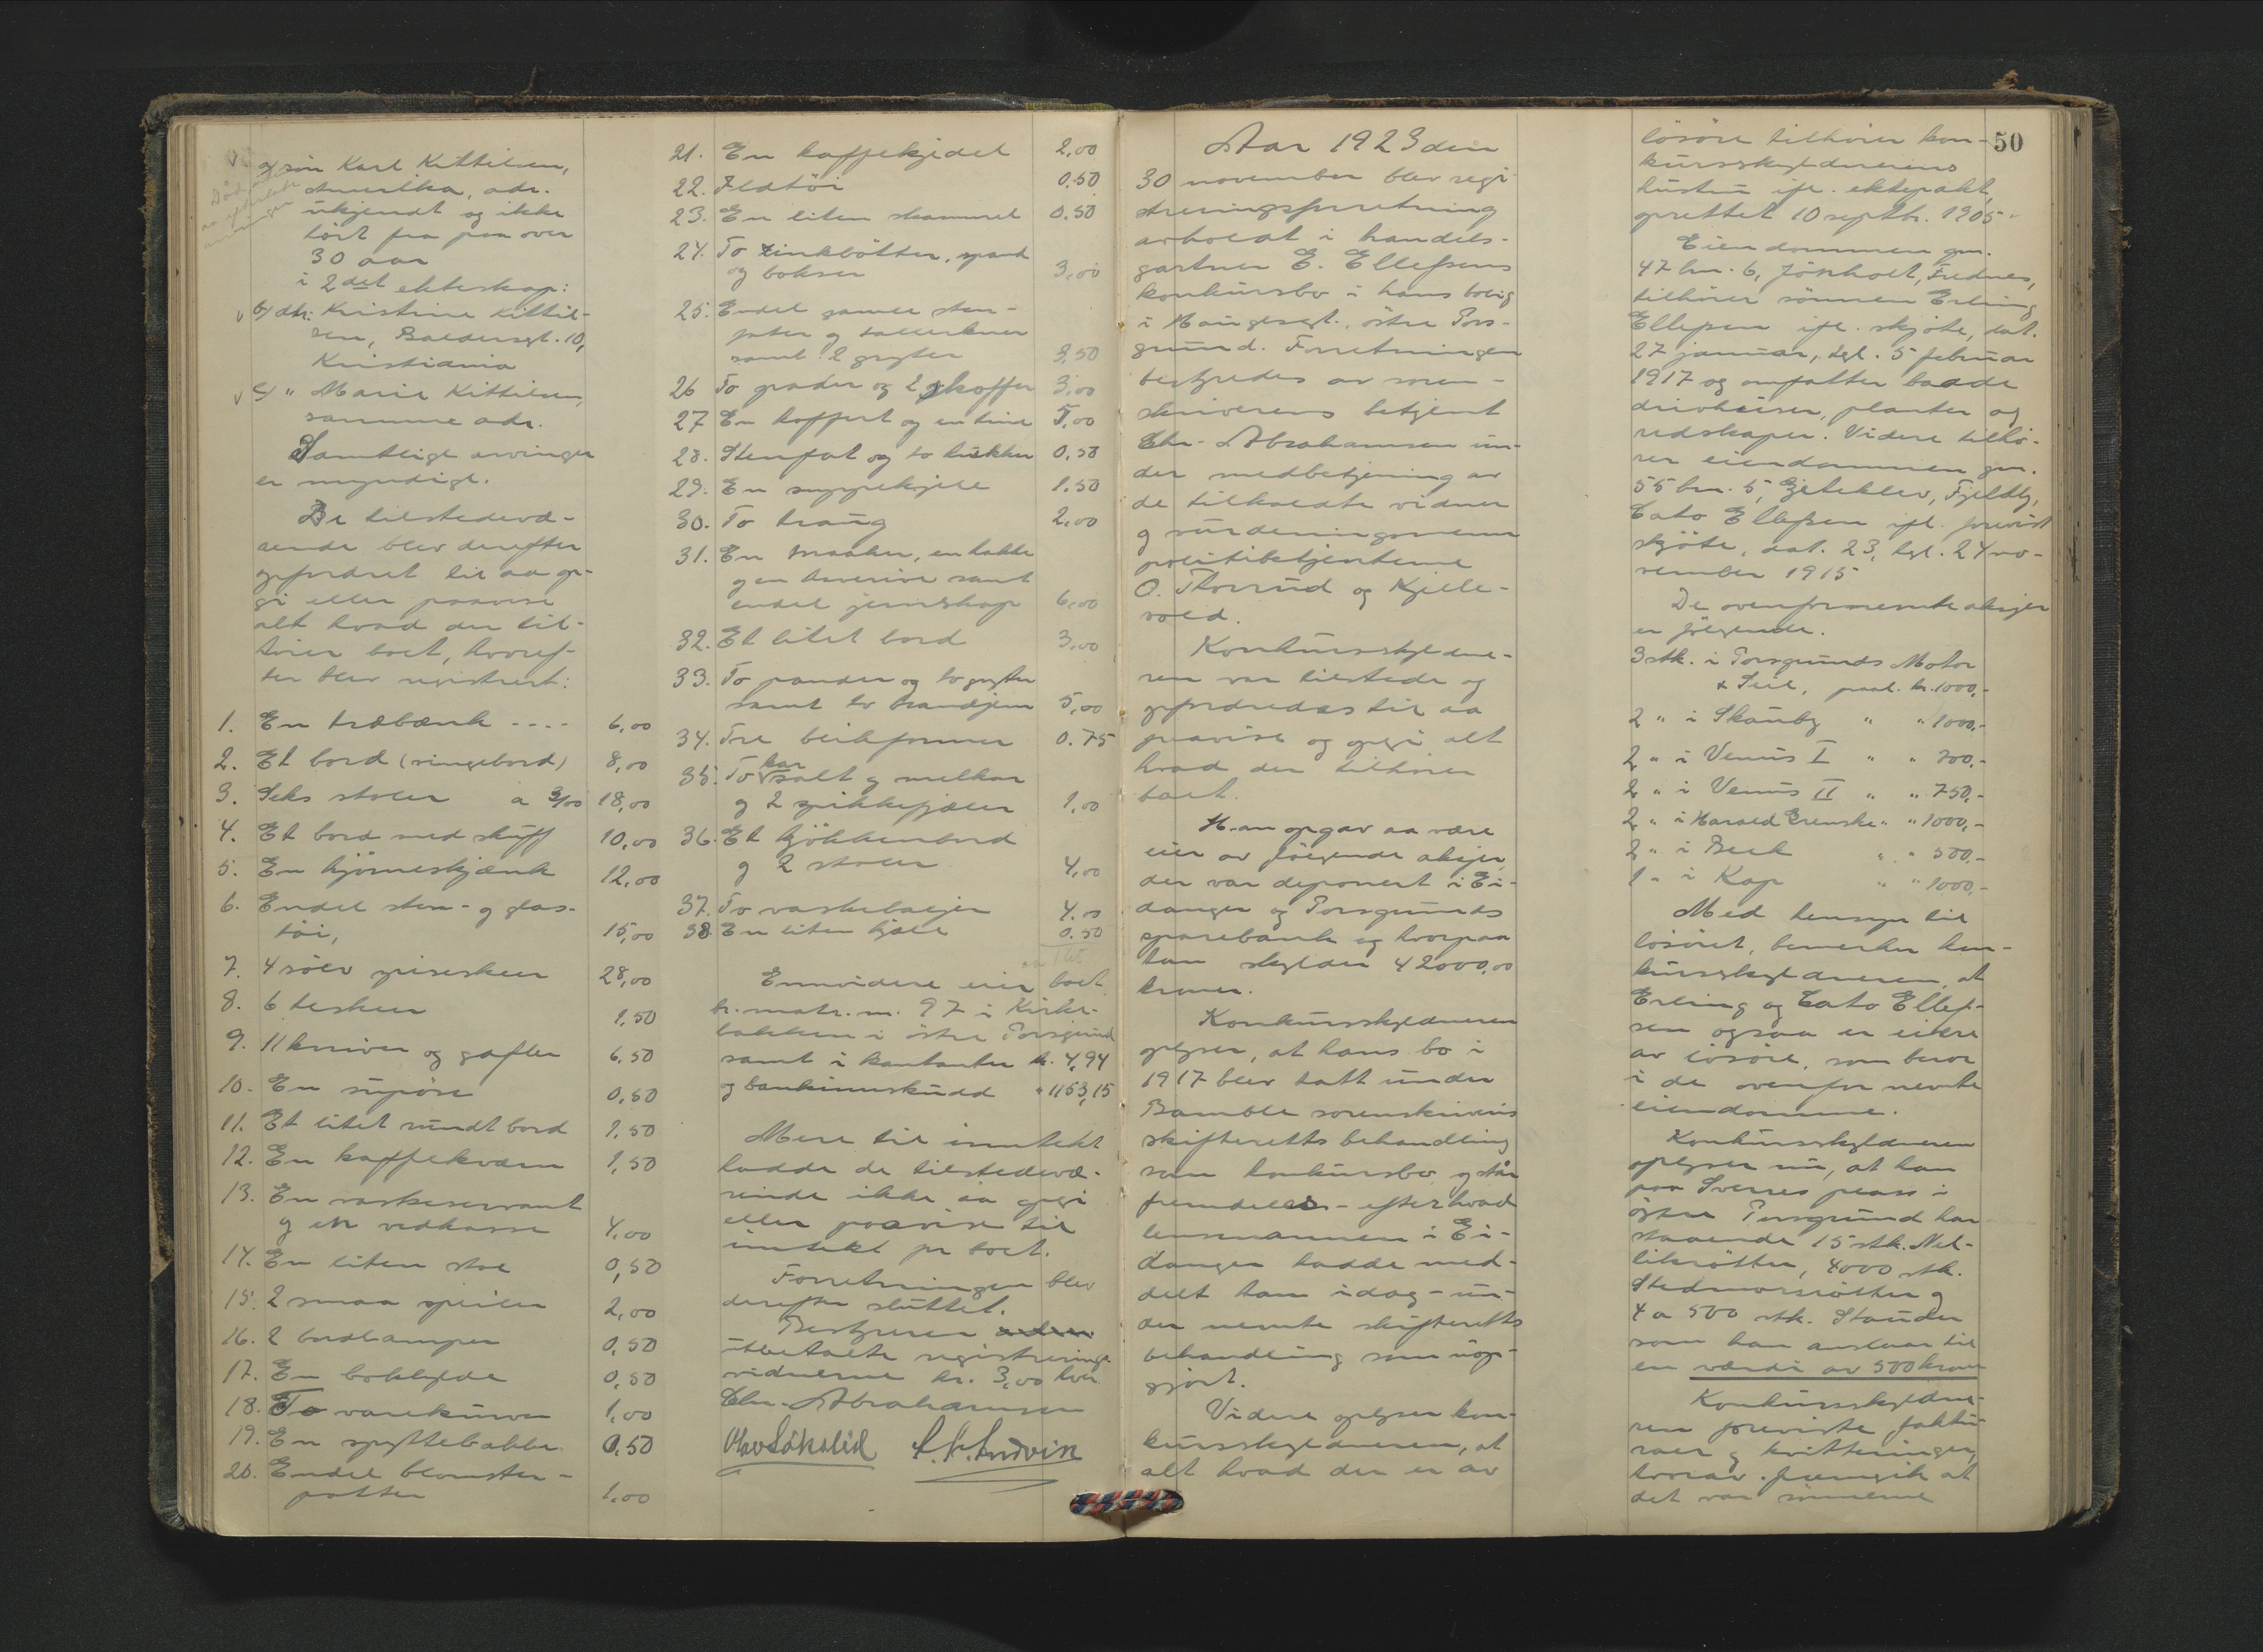 a) søn Karl Kittilsen,
Amerika, adr.
ukjendt og ikke
hørt fra paa over
30 aar
i 2det ekteskap:
b) dtr. Kristine Kittil-
sen, Baldersgt. 10,
Kristiania
c) " Marie Kittilsen,
samme adr.
Samtlige arvinger
er myndige.
De tilstedevæ-
rende blev derefter
opfordret til aa op-
gi eller paavise
alt hvad der til-
hører boet, hvoref-
ter blev registrert:
1. En træbænk ---- 6,00
2. Et bord (vingebord) 8,00
3. Seks stoler a 3/00 18,00
4. Et bord med skuff 10,00
5. En hjørneskjænk 12,00
6. Endel sten- og glas-
tøi, 15,00
7. 4 sølv spiseskeer 28,00
8. 6 teskeer 1,50
9. 11 kniver og gafler 6,50
10. En supøse 0,50
11. Et litet rundt bord 1,50
12. En kaffekværn 1,50
13. En vaskeservant
og en vedkasse 4,00
14. En liten stol 0,50
15. 2 smaa speiler 2,00
16. 2 bordlamper 0,50
17. En bokhylde 0,50
18. To varekurver 1,00
19. En spyttebakke 0,50
20. Endel blomster-
potter 1,00
21. En kaffekjedel 2,00
22. Ildtøi 0,50
23. En liten skammel 0,50
24. To zinkbøtter, spand
og bokser 3,00
25. Endel gamle sten-
fater og tallerkner
samt 2 gryter 3,50
26 To grader og 2 skoffer 3,00
27 En koffert og en tine 5,00
28. Stenfat og to krukker 0,50
29. En suppekjele 1.50
30. To traug 2,00
31. En spade, en hakke
og en haverive samt
endel jernskrap 6,00
32. Et litet bord 3,00
33. To pander og to gryter
samt to strykejern 5,00
34. Tre kakeformer 0.75
35. To kar salt og melkar
og 2 spikkefjæler 1,00
36. Et kjøkkenbord
og 2 stoler 4,00
37. To vaskebaljer 4.00
38. En liten kjele 0.50
Ennvidere eier boet
br. matr. nr. 97 i Kirke-
bakken i østre Porsgrund
samt i kontanter kr. 4,94
og bankinnskudd " 1153,15
Mere til inntekt
hadde de tilstedevæ-
rende ikke aa opgi
eller paavise til
inntekt for boet.
Forretningen blev
derefter sluttet.
Bestyreren
utbetalte registrerings-
vidnerne kr. 3,00 hver
Chr. Abrahamsen
Aar 1923 den
30 november blev regi-
streringsforretning
avholdt i handels-
gartner E. Ellefsens
konkursbo i hans bolig
i Haugesgt., østre Pors-
grund. Forretningen
bestyredes av soren-
skriverens betjent
Chr. Abrahamsen un-
der medbetjening av
de tilkaldte vidner
og vurderingsmenn
politibetjentene
O. Thorrud og Kjelle-
vold.
Konkursskyldne-
ren var tilstede og
opfordredes til aa
paavise og opgi alt
hvad der tilhører
boet.
Han opgav aa være
eier av følgende aksjer,
der var deponert i Ei-
danger og Porsgrunds
sparebank og hvorpaa
han skylder 42000,00
kroner.
Konkursskyldneren
oplyser, at hans bo i
1917 blev tatt under
Bamble sorenskriveris
skifteretts behandling
som konkursbo og står
fremdeles - efter hvad
lensmannen i Ei-
danger hadde med-
delt ham idag - un-
der nevnte skifteretts
behandling som uop-
gjort.
Videre oplyser kon-
kursskyldneren, at
alt hvad der er av
50
løsøre tilhører kon-
kursskyldnerens
hustru ifl. ektepakt,
oprettet 10 septbr. 1905.
Eiendommen gnr.
47 bnr. 6, Jønholt, Frednes,
tilhører sønnen Erling
Ellefsen ifl. skjøte, dat.
27 januar, tgl. 5 februar
1917 og omfatter baade
drivhuser, planter og
redskaper. Videre tilhø-
rer eiendommen gnr.
55 bnr. 5, Gjeteklev, Fjeldby,
Cato Ellefsen ifl. forevist
skjøte, dat. 23, tgl. 24 no-
vember 1915
De ovenfornevnte aksjer
er følgende.
3 stk. i Porsgrunds Motor
& Seil, paal. kr. 1000,-
2 " i Skauby " " 1000,-
2 " i Venus I " " 700,-
2 " i Venus II " " 750,-
2 " i Harald Grenske " " 1000,-
2 " i Beck " " 500,-
1 " i Kap " " 1000,-
Med hensyn til
løsøret, bemerker kon-
kursskyldneren, at
Erling og Cato Ellef-
sen ogsaa er eiere
av løsøre, som beror
i de ovenfor nevnte
eiendomme.
Konkursskyldneren
oplyser nu, at han
paa Sverres plass i
østre Porsgrund har
staaende 15 stk. Nel-
likrøtter, 4000 stk.
Stedmorsrøtter og
4 a 500 stk. Stauder
som han anslaar til
en værdi av 500 kroner
Konkursskyldne-
ren foreviste faktu-
raer og kvitteringer,
hvorav fremgik at
det var sønnerne